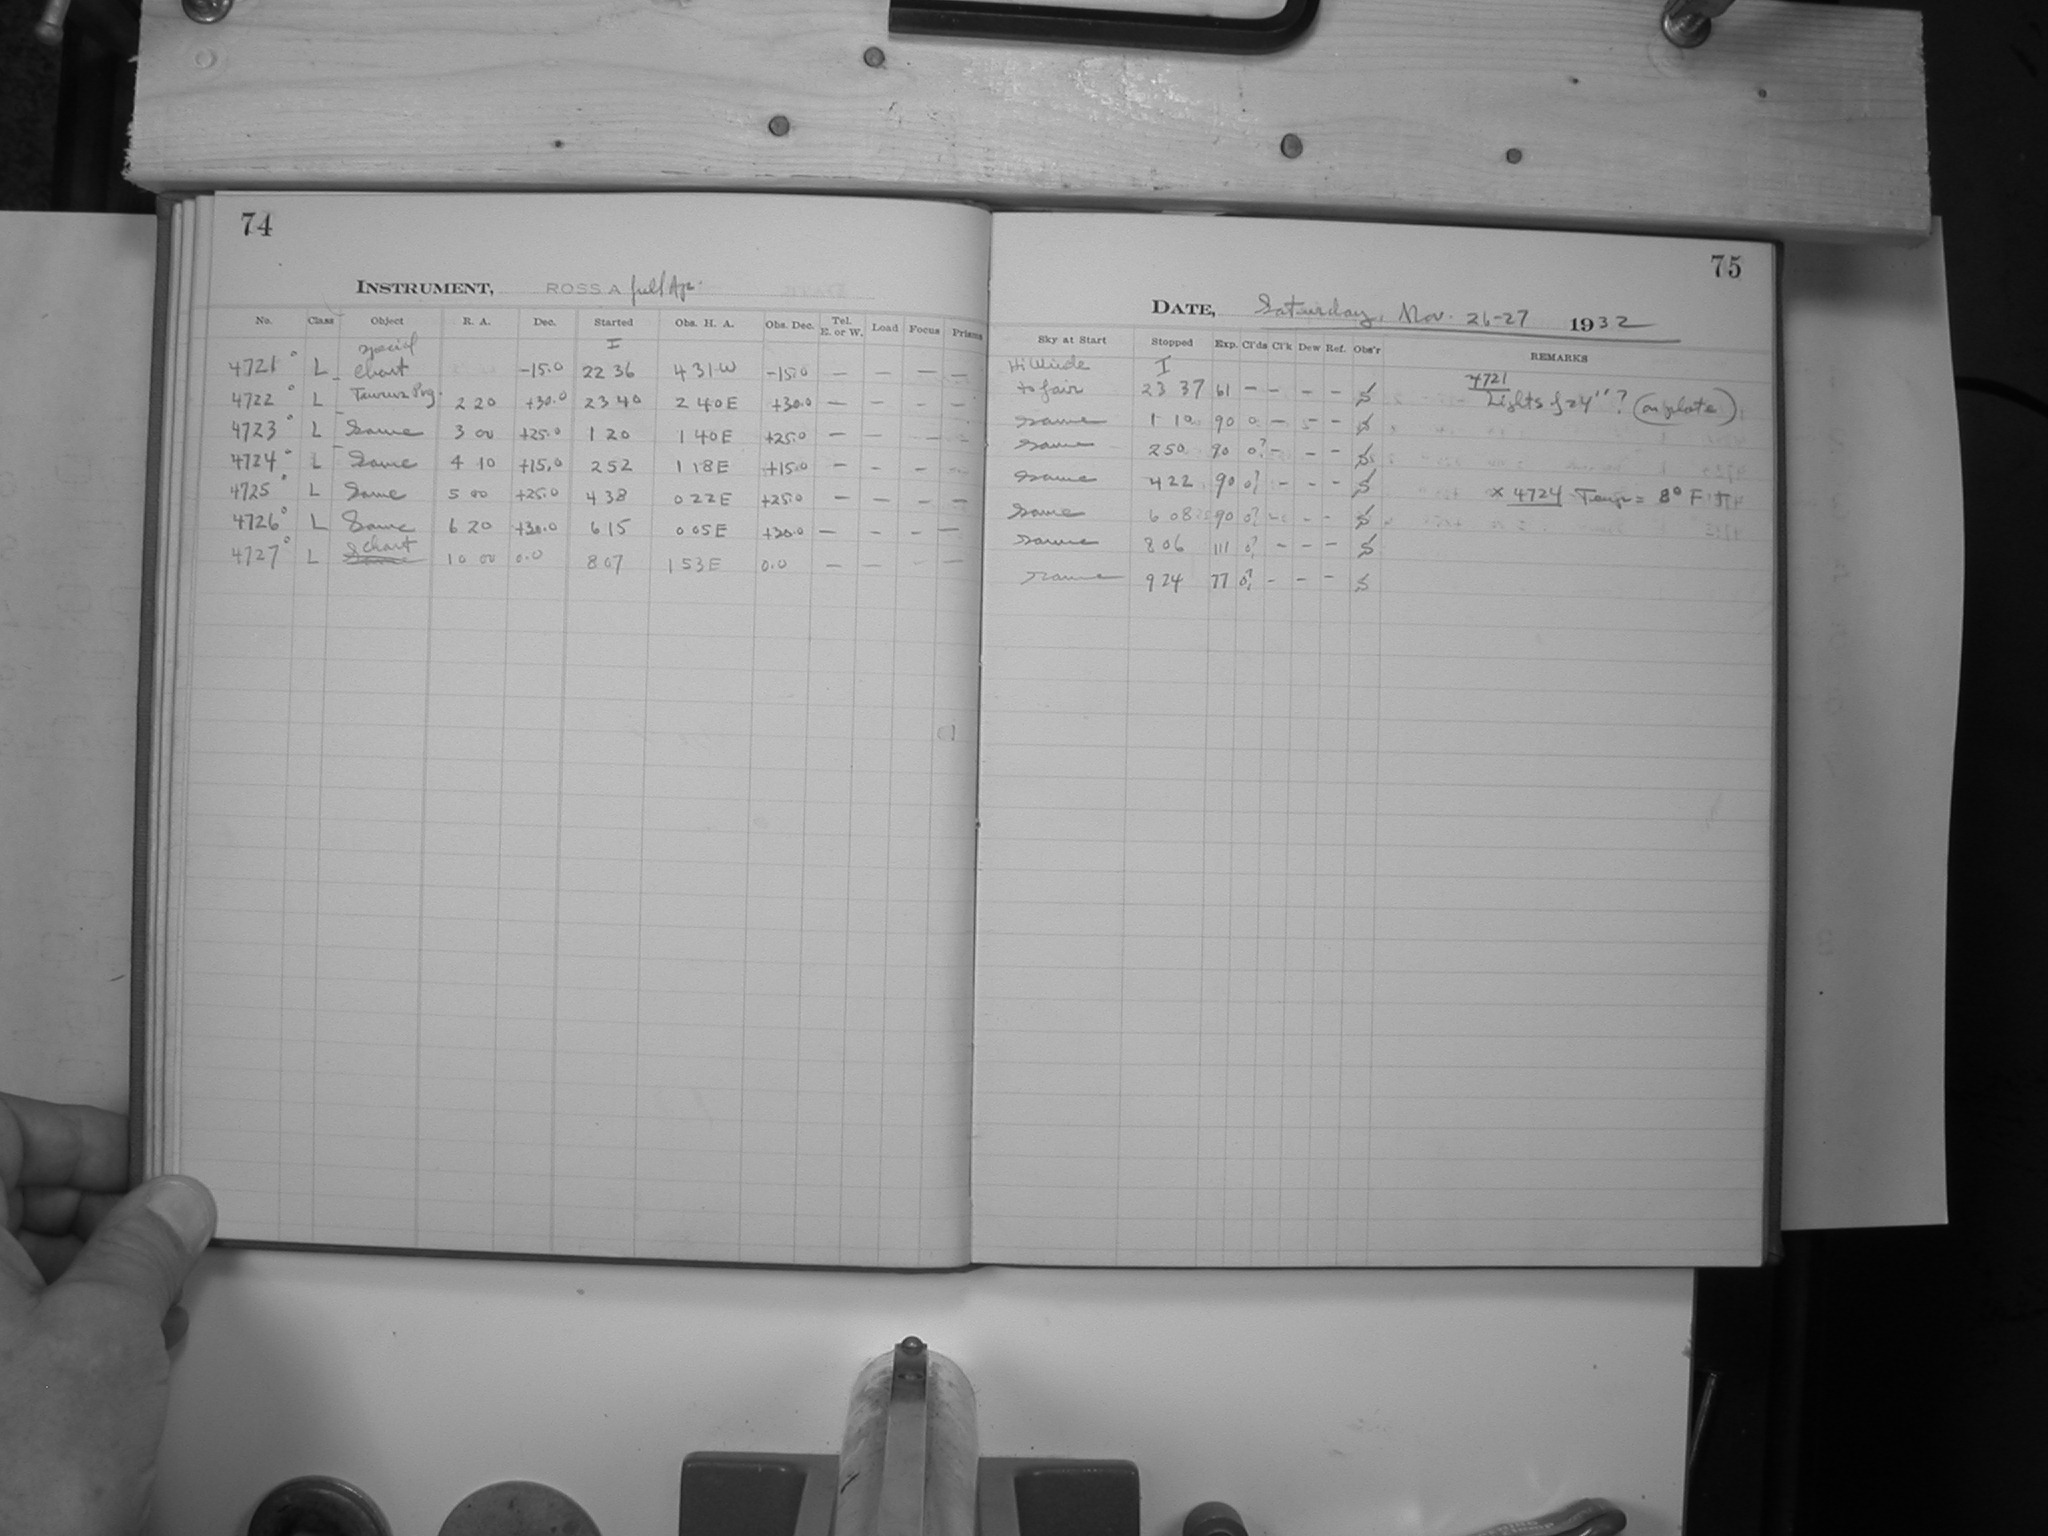 74
INSTRUMENT, ROSS A full Ap.
No. Class Object R. A. Dec. Started Obs. H. A. Obs. Dec. Tel. E. or W. Load Focus Prisms
special I
4721° L chart -15.0 22 36 4 31 W -15.0 — — — —
4722° L Taurus Prg. 2 20 +30.0 23 40 2 40 E +30.0 — — — —
4723° L Same 3 00 +25.0 1 20 1 40 E +25.0 — — — —
4724° L Same 4 10 +15.0 2 52 1 18 E +15.0 — — — —
4725° L Same 5 00 +25.0 4 38 0 22 E +25.0 — — — —
4726° L Same 6 20 +30.0 6 15 0 05 E +30.0 — — — —
4727° L chart 10 00 0.0 8 07 1 53 E 0.0 — — — —
75
DATE, Saturday, Nov. 26-27 1932
Sky at Start Stopped Exp. Cl'ds Cl'k Dew Ref. Obs'r REMARKS
Hi Winds I 4721
to fair 23 37 61 — — — — Lights f 24"? (on plate)
Same 1 10 90 0 — — —
Same 2 50 90 0? — — —
Same 4 22 90 0? — — — x 4724 Temp = 8° F
Same 6 08 90 0? — — —
Same 8 06 111 0? — — —
Same 9 24 77 0? — — —